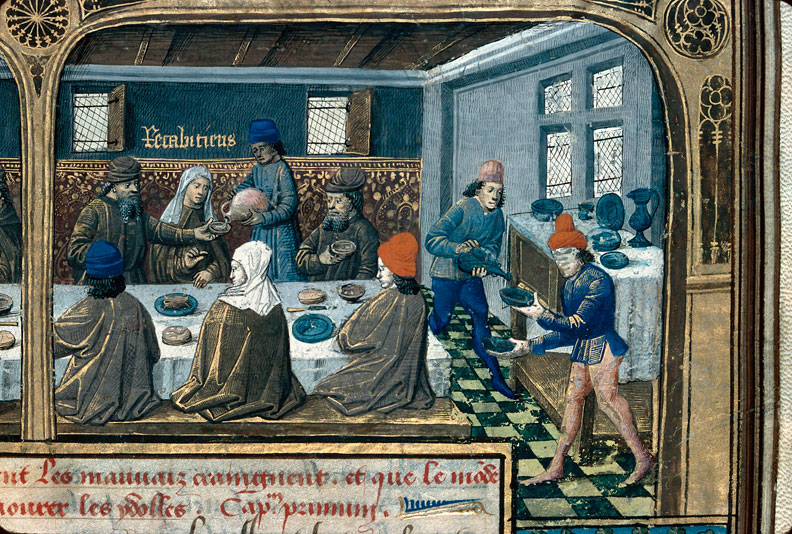 Recabitiens
nt les mauuaiz craingnent. et que le mōde
ourer les ydolles. Cap.m primum.